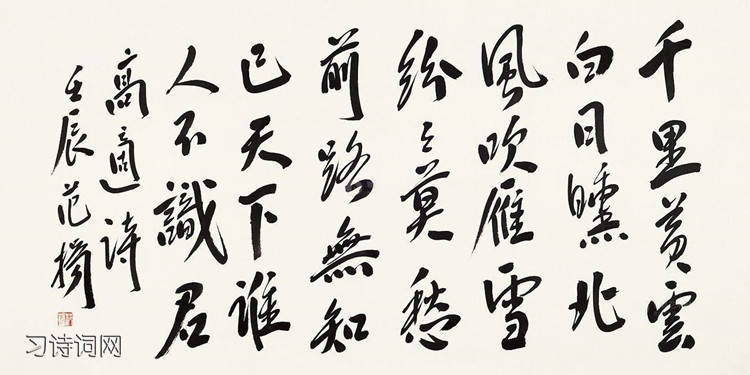 千里黄雲
白日曛北
風吹雁雪
紛々莫愁
前路無知
己天下誰
人不識君
高適詩
壬辰范揚
习诗词网